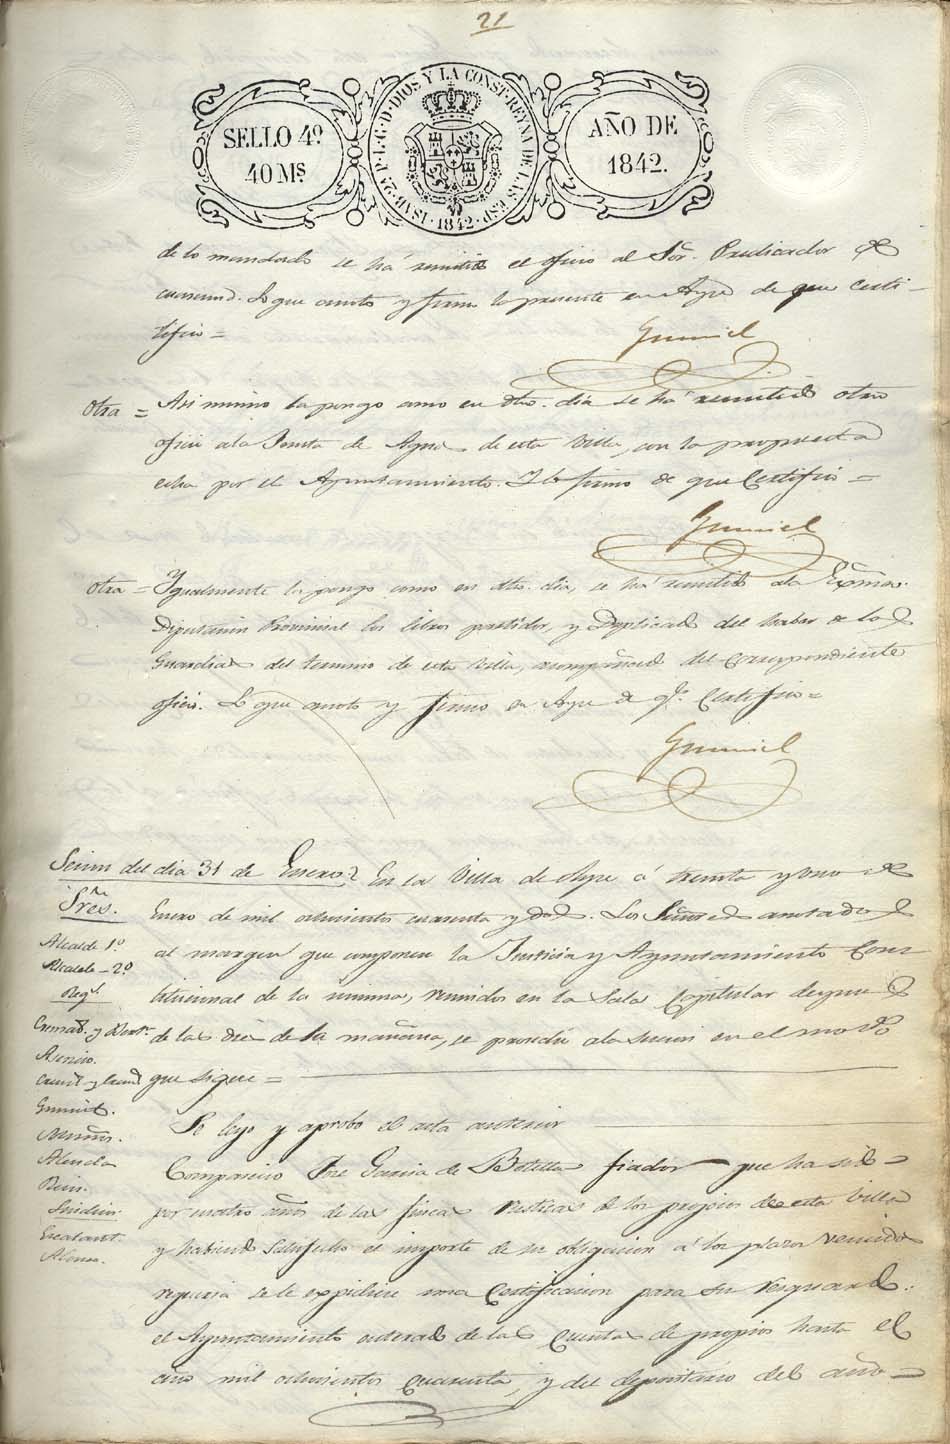 21
SELLO 4º.
40 Ms.
ISAB. 2ª P. L. G. D. DIOS Y LA CONST. REYNA DE LAS ESP. 1842.
AÑO DE
1842.
de lo mandado se ha remitido el oficio al Sor. Predicador de
cuaresma. Lo que anoto y firmo la presente en Aspe de que Certi-
tifico =
Gumiel
Otra = Asi mismo la pongo como en dho. dia se ha remitido otro
oficio ala Junta de Aguas de esta Villa, con la propuesta
echa por el Ayuntamiento. Y lo firmo de que Certifico =
Gumiel
Otra = Igualmente la pongo como en dho. dia, se ha remitido ala Exma.
Diputacion Provincial los libros partidor, y Duplicado del haber de los
Guardias del termino de esta Villa, acompañado del Correspondiente
oficio. Lo que anoto y firmo en Aspe de qe. Certifico =
Gumiel
Secion del dia 31 de Enero
Sres.
Alcalde 1º.
Alcalde - 2º
Regs.
Asencio.
Gumiel.
Muñoz.
Almela
Sindicos
Escalant.
En la Villa de Aspe á treinta y uno de
Enero de mil ochocientos cuarenta y dos. Los Señores anotados
al margen que componen la Justicia y Ayuntamiento Cons
titucional de la misma, reunidos en la Sala Capitular despues
de las diez de la mañana, se procedio ala secion en el modo
que sigue =
Se leyo y aprobo el acta anterior
Comparecio José Garcia de Botella fiador que ha sido
por cuatro años de las fincas rusticas de los propios de esta Villa
y habiendo satisfecho el importe de su obligacion á los plazos vencidos
requeria se le expidiese una Certificacion para su resguardo.
el Ayuntamiento enterado de las Cuentas de propios hasta el
año mil ochocientos Cuarenta, y del depositario del año